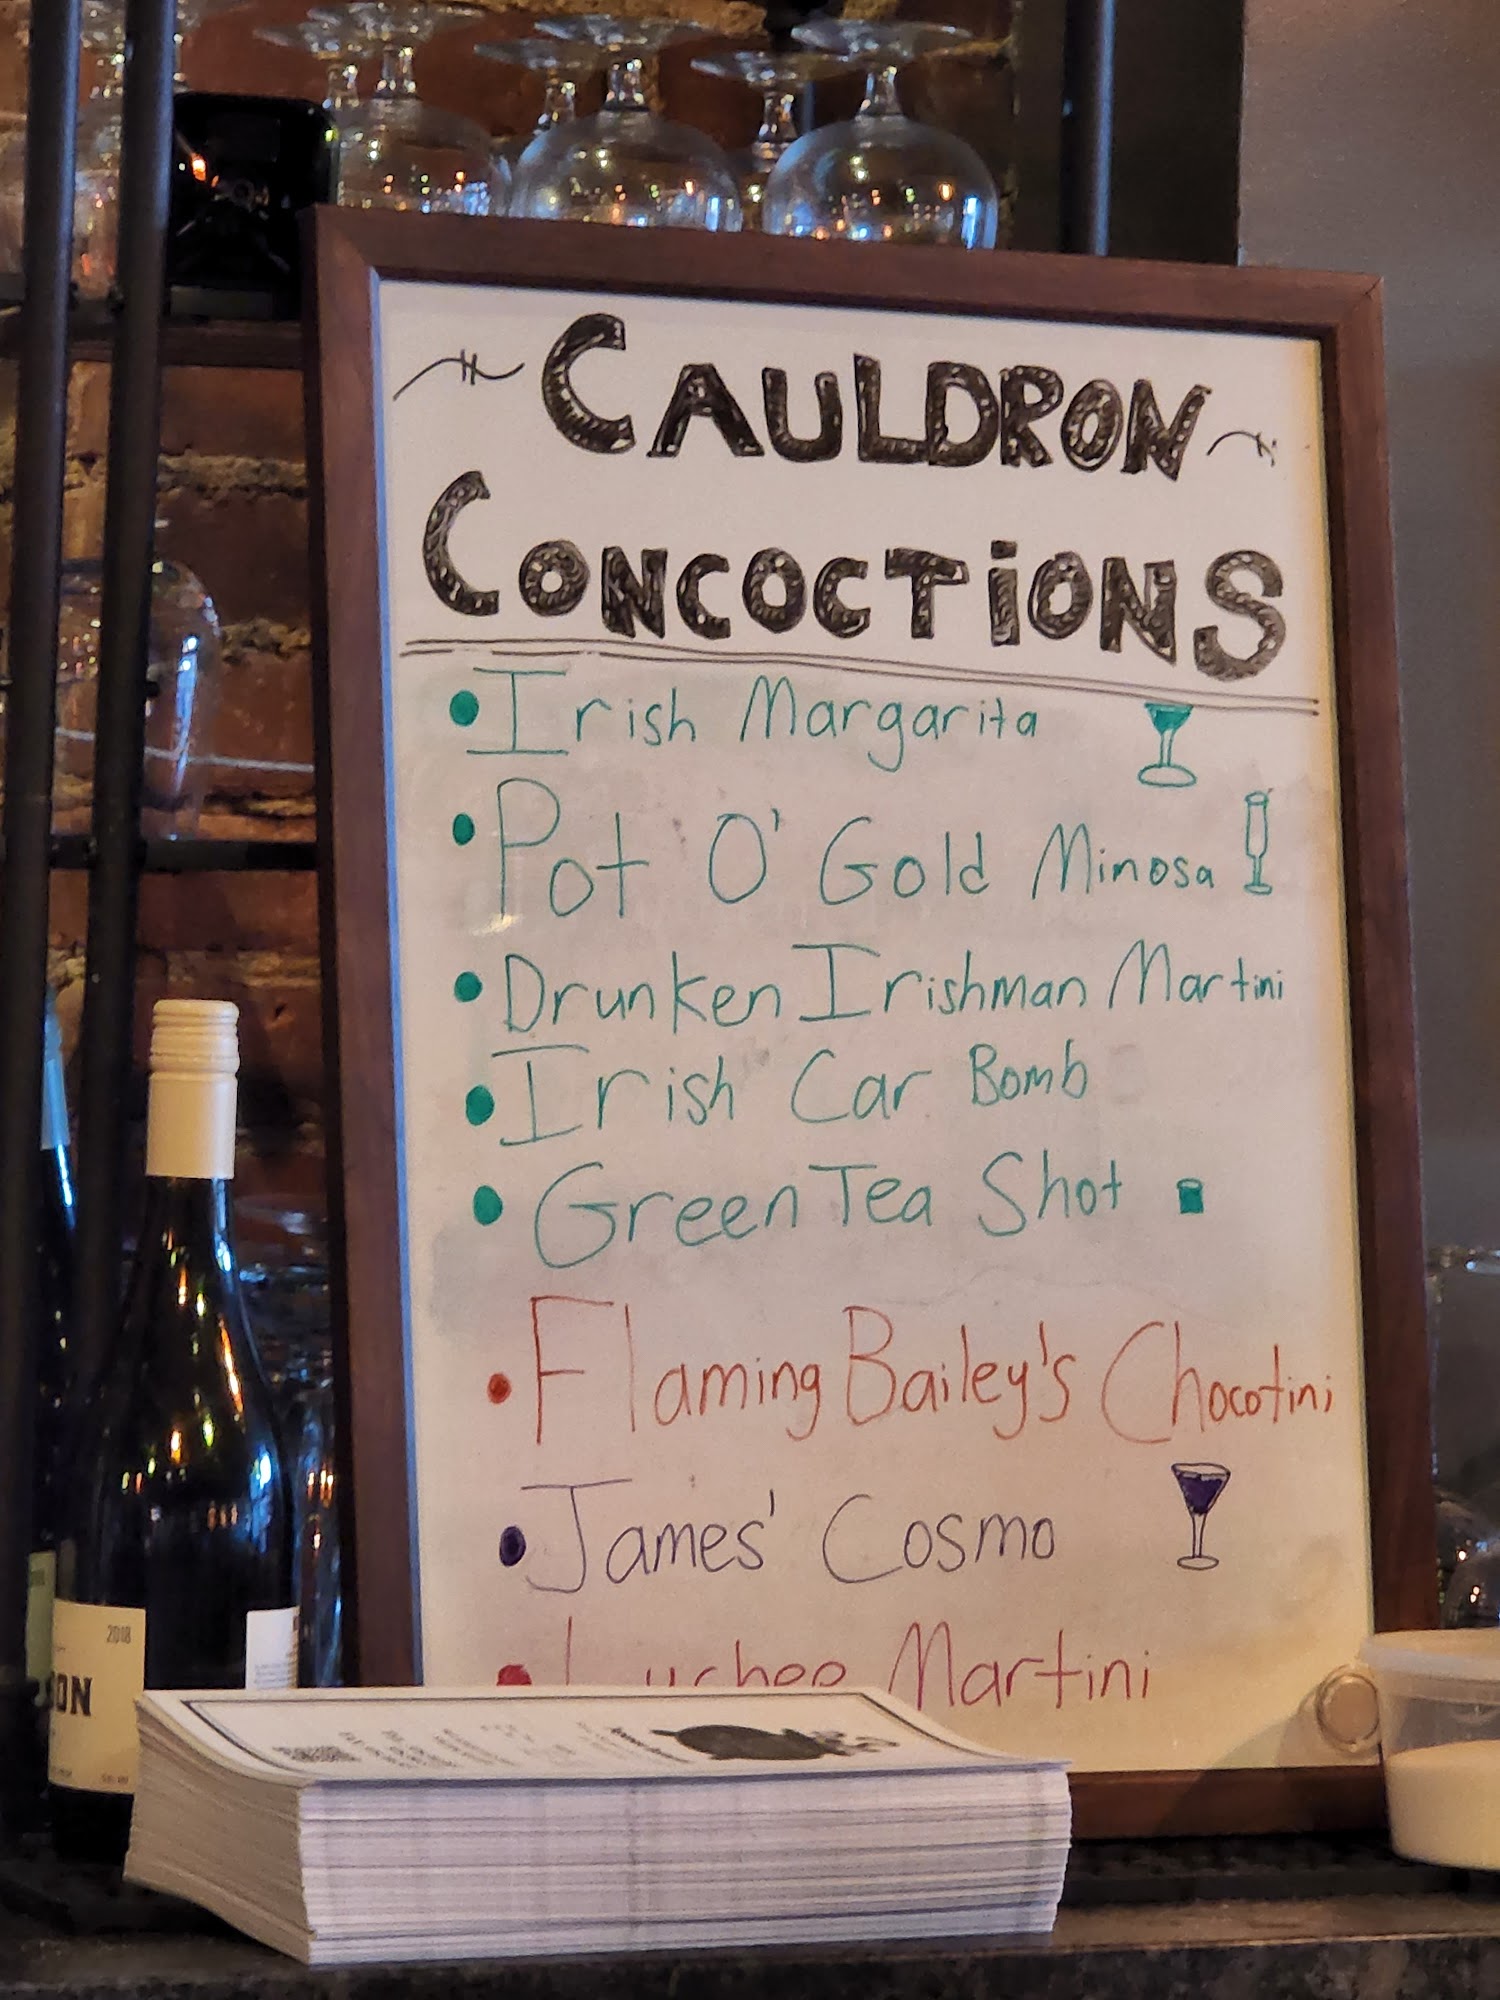 CAULDRON
CONCOCTIONS
• Irish Margarita
• Pot O' Gold Mimosa
• Drunken Irishman Martini
• Irish Car Bomb
• Green Tea Shot
• Flaming Bailey's Chocotini
• James' Cosmo
• Lychee Martini
2018
ON